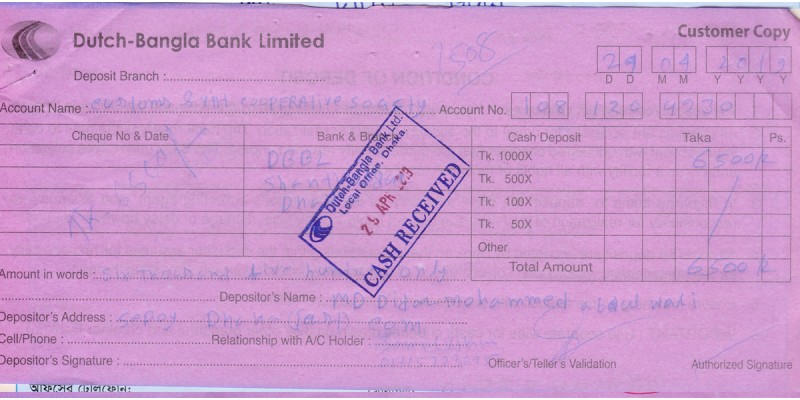 Customer Copy
Dutch-Bangla Bank Limited
7508
29 04 201
D D M M Y Y Y Y
Deposit Branch :
Account Name : customs & VAT cooperative society Account No. 108 120 4230
Cheque No & Date Bank & Branch Cash Deposit Taka Ps.
DBBL Tk. 1000X 6500/
Tk. 500X
Tk. 100X
Tk. 50X
Other
Total Amount 6500/
Dutch-Bangla Bank Ltd.
Local Office, Dhaka.
APR
CASH RECEIVED
Amount in words : Six thousand five hundred only
Depositor's Name : MD mohammed abdul
Depositor's Address : Sepoy Dhaka
Cell/Phone : Relationship with A/C Holder :
Depositor's Signature : Officer's/Teller's Validation Authorized Signature